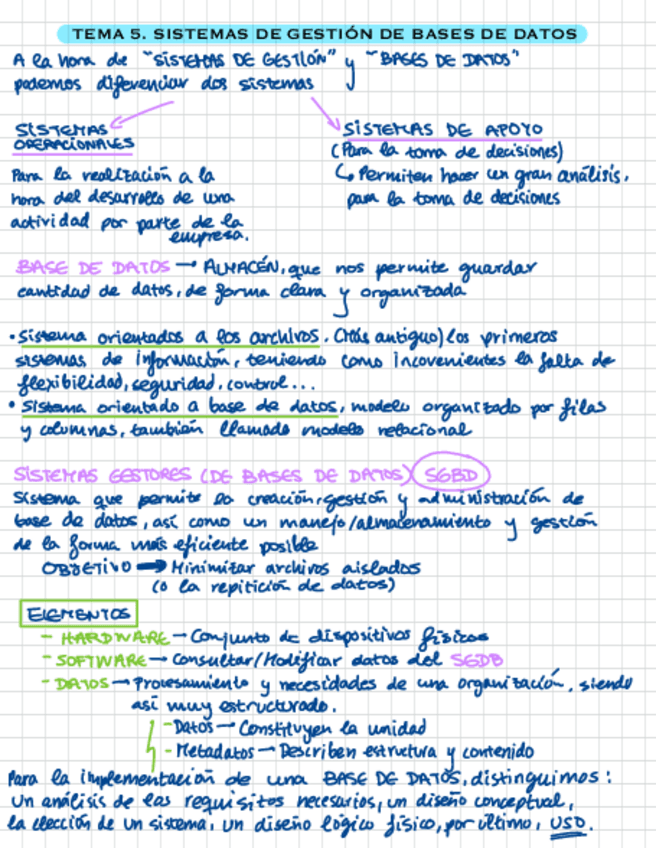 TEMA 5. SISTEMAS DE GESTIÓN DE BASES DE DATOS
A la hora de "SISTEMAS DE GESTIÓN" y "BASES DE DATOS"
podemos diferenciar dos sistemas
SISTEMAS
OPERACIONALES
Para la realización a la
hora del desarrollo de una
actividad por parte de la
empresa.
SISTEMAS DE APOYO
(Para la toma de decisiones)
↳ Permiten hacer un gran análisis,
para la toma de decisiones
BASE DE DATOS → ALMACÉN, que nos permite guardar
cantidad de datos, de forma clara y organizada
• Sistema orientados a los archivos. (Más antiguo) los primeros
sistemas de información, teniendo como incovenientes la falta de
flexibilidad, seguridad, control...
• Sistema orientado a base de datos, modelo organizado por filas
y columnas, también llamado modelo relacional
SISTEMAS GESTORES (DE BASES DE DATOS) SGBD
Sistema que permite la creación, gestión y administración de
base de datos, así como un manejo/almacenamiento y gestión
de la forma más eficiente posible
OBJETIVO → Minimizar archivos aislados
(o la repitición de datos)
ELEMENTOS
- HARDWARE → Conjunto de dispositivos físicos
- SOFTWARE → Consultar/Modificar datos del SGDB
- DATOS → Procesamiento y necesidades de una organización, siendo
así muy estructurado.
- Datos → Constituyen la unidad
- Metadatos → Describen estructura y contenido
Para la implementación de una BASE DE DATOS, distinguimos:
un análisis de los requisitos necesarios, un diseño conceptual,
la elección de un sistema, un diseño lógico físico, por último, USO.